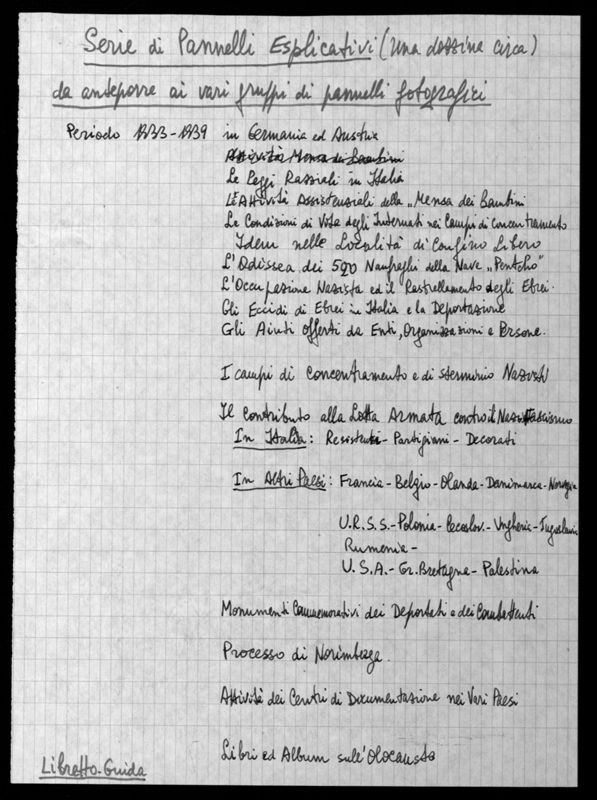 Serie di Pannelli Esplicativi (una dozzina circa)
da anteporre ai vari gruppi di pannelli fotografici
Periodo 1933-1939 in Germania ed Austria
Attività Mensa dei Bambini
Le Leggi Razziali in Italia
L'Attività Assistenziali della "Mensa dei Bambini
Le Condizioni di Vita degli Internati nei Campi di concentramento
Idem nelle Località di Confino Libero
L'Odissea dei 520 Naufraghi della Nave "Pentcho"
L'Occupazione Nazista ed il Rastrellamento degli Ebrei.
Gli Eccidi di Ebrei in Italia e la Deportazione
Gli Aiuti offerti da Enti, Organizzazioni e Persone.
I campi di concentramento e di sterminio Nazisti
Il contributo alla Lotta Armata contro il Nazifascismo
In Italia: Resistenti - Partigiani - Decorati
In Altri Paesi: Francia - Belgio - Olanda - Danimarca - Norvegia
U.R.S.S. - Polonia - Cecoslov. - Ungheria - Jugoslavia
Rumenia -
U.S.A. - Gr. Bretagna - Palestina
Monumenti Commemorativi dei Deportati e dei Combattenti
Processo di Norimberga.
Attività dei Centri di Documentazione nei Vari Paesi
Libri ed Album sull'Olocausto
Libretto-Guida